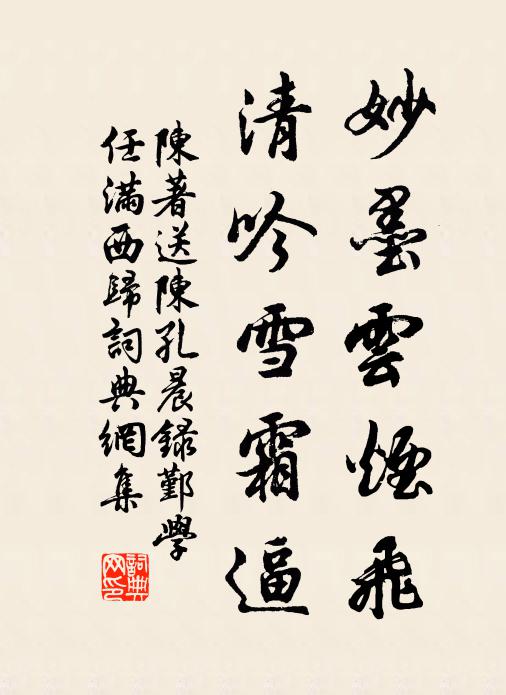 妙墨雲煙飛
清吟雪霜逼
陳著送陳孔晨錄鄞學
任滿西歸詞典網集
詞典网印